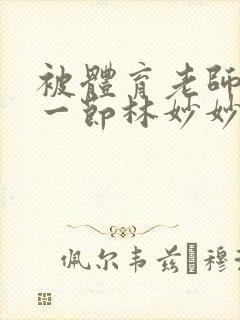 被體育老師
一節林妙妙
佩尔韦兹�穆